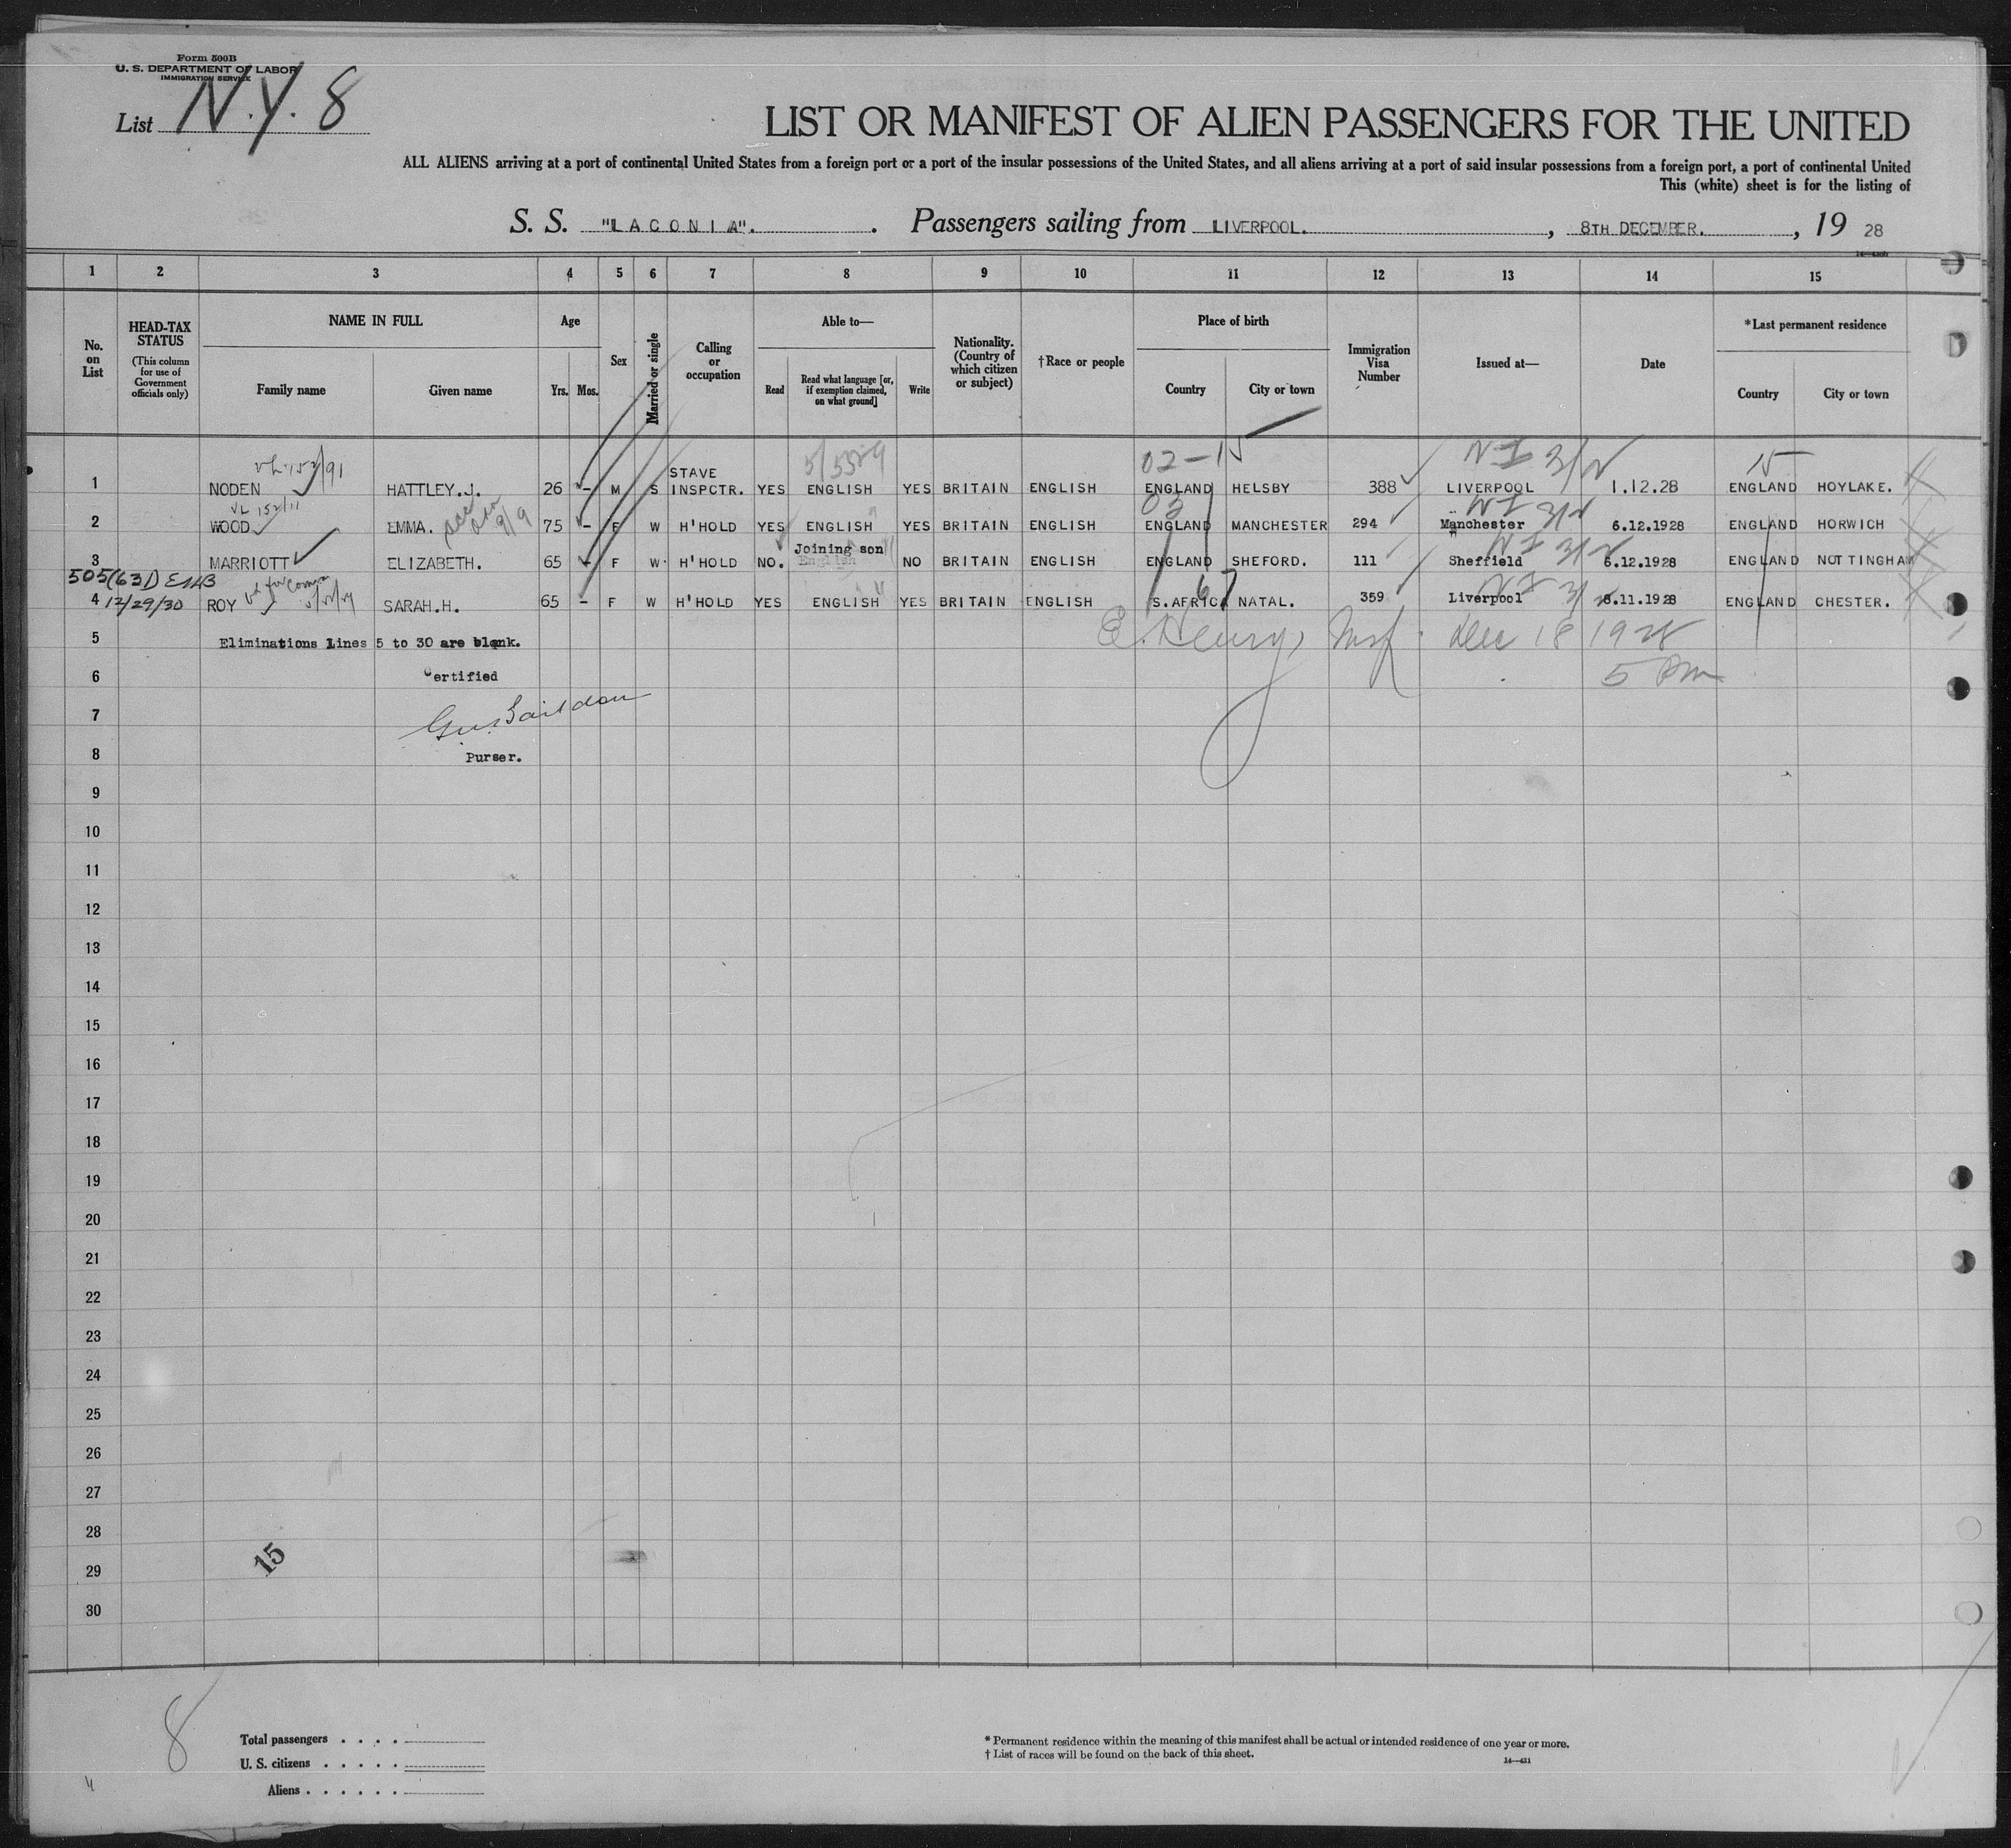 Form 500B
U. S. DEPARTMENT OF LABOR
IMMIGRATION SERVICE
List N.Y. 8
LIST OR MANIFEST OF ALIEN PASSENGERS FOR THE UNITED
ALL ALIENS arriving at a port of continental United States from a foreign port or a port of the insular possessions of the United States, and all aliens arriving at a port of said insular possessions from a foreign port, a port of continental United
This (white) sheet is for the listing of
S. S. "LACONIA". . Passengers sailing from LIVERPOOL. , 8TH DECEMBER. , 19 28
1 2 3 4 5 6 7 8 9 10 11 12 13 14 15
No. on List
HEAD-TAX STATUS
(This column for use of Government officials only)
NAME IN FULL
Family name Given name
Age
Yrs. Mos.
Sex
Married or single
Calling or occupation
Able to—
Read
Read what language [or, if exemption claimed, on what ground]
Write
Nationality. (Country of which citizen or subject)
†Race or people
Place of birth
Country City or town
Immigration Visa Number
Issued at—
Date
*Last permanent residence
Country City or town
02-15 15
1 NODEN HATTLEY.J. 26 - M S STAVE INSPCTR. YES ENGLISH YES BRITAIN ENGLISH ENGLAND HELSBY 388 LIVERPOOL 1.12.28 ENGLAND HOYLAKE.
03
2 WOOD EMMA. 75 - F W H'HOLD YES ENGLISH YES BRITAIN ENGLISH ENGLAND MANCHESTER 294 Manchester 6.12.1928 ENGLAND HORWICH
Joining son
3 MARRIOTT ELIZABETH. 65 F W. H'HOLD NO. English NO BRITAIN ENGLISH ENGLAND SHEFORD. 111 Sheffield 6.12.1928 ENGLAND NOTTINGHAM
505(631) 67
12/29/30
4 ROY SARAH.H. 65 - F W H'HOLD YES ENGLISH YES BRITAIN ENGLISH S.AFRICA NATAL. 359 Liverpool 8.11.1928 ENGLAND CHESTER.
5 Eliminations Lines 5 to 30 are blank. E. Henry, Insp. Dec 18 1928
6 Certified 5 Pm
7
8 Purser.
9
10
11
12
13
14
15
16
17
18
19
20
21
22
23
24
25
26
27
28
29
30
15
8
Total passengers . . . .
U. S. citizens . . . . .
Aliens . . . . . .
* Permanent residence within the meaning of this manifest shall be actual or intended residence of one year or more.
† List of races will be found on the back of this sheet.
14—431